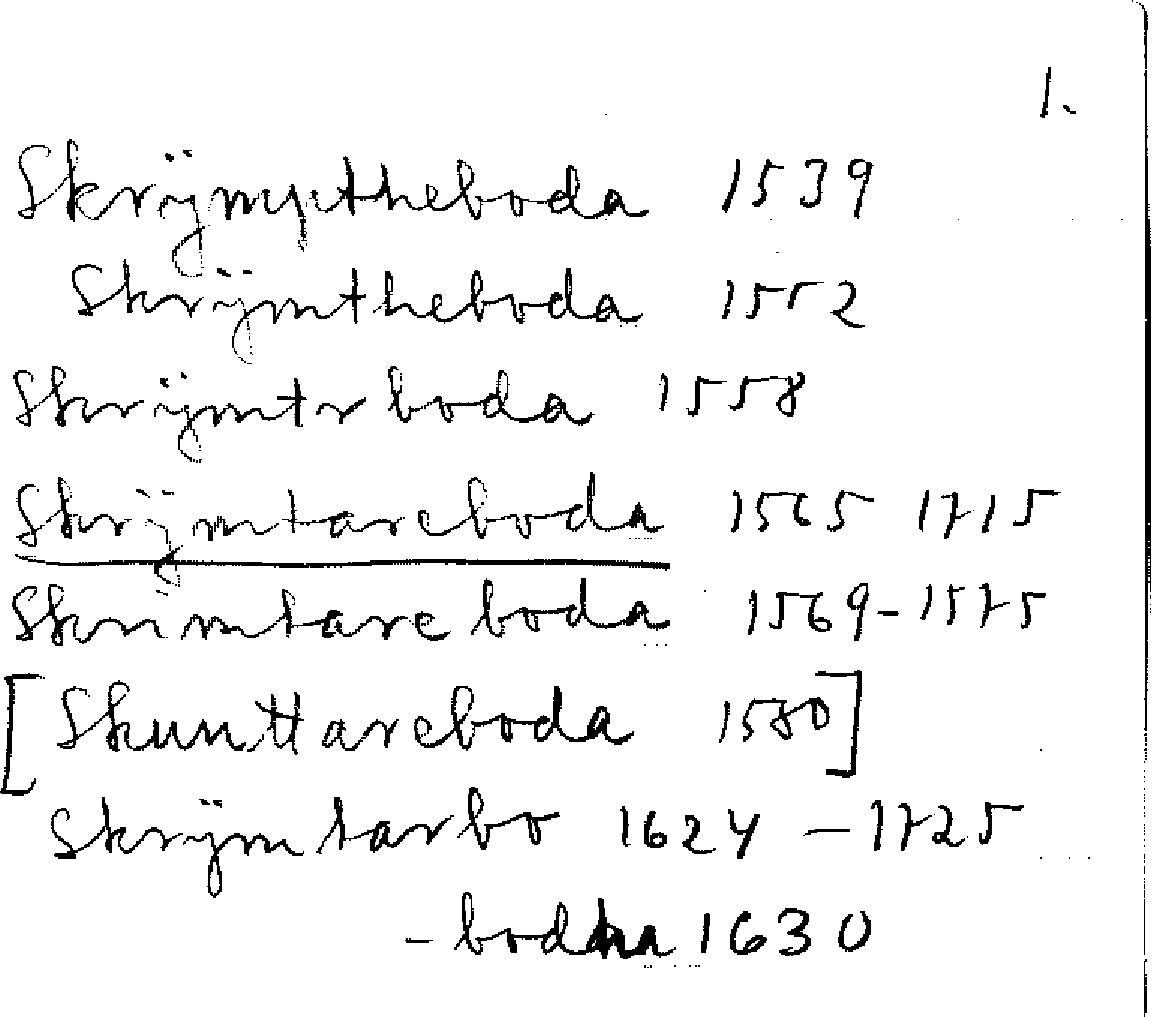 1.
Skrÿmptheboda 1539
Skrÿmtheboda 1552
Skrÿmtr boda 1558
Skrÿmtareboda 1565 1715
Skrimtare boda 1569-1575
[Skunttareboda 1580]
Skrÿmtarbo 1624 - 1725
- bodha 1630